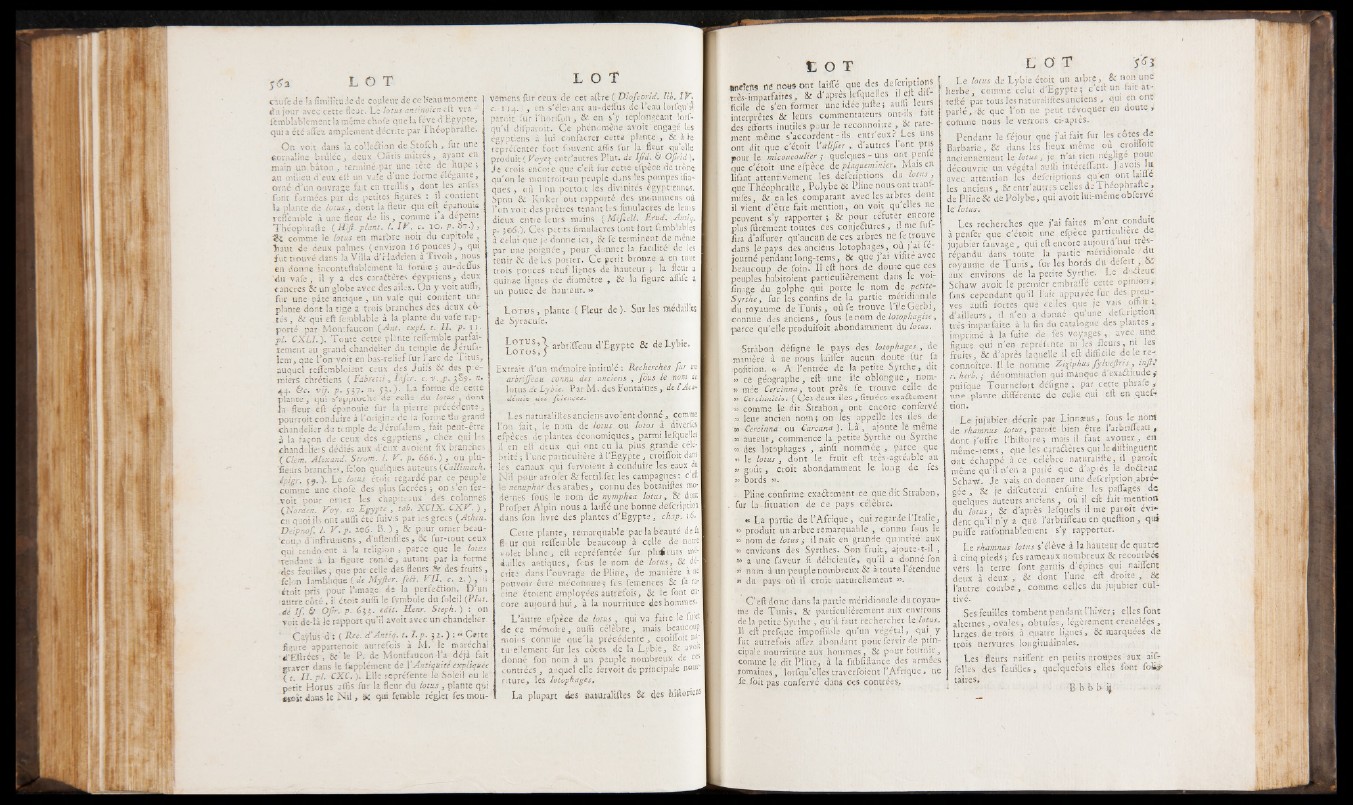 562 LOT
cauſe de la ſimilitude de couleur de ce beau moment
du jour avec cette fleur. Le lotus antinoien eſt vrai-
ſemblablement la même choſe que la feve d'Egypte,
qui a été aſſez amplement décrite par Théophraſte.
On voit dans la collection de Stoſch, ſur une
cornaline brûlée, deux Oſiris mitrés, ayant en
main un bâton, terminé par une tête de hupe;
au milieu d'eux eſt un vaſe d'une forme élégante,
orné d'un ouvrage fait en treillis, dont les anſes
ſont formées par de petites figures : il contient
la plante de lotus, dont la fleur qui eſt épanouie
reſſemble à une fleur de lis, comme l'a dépeint
Théophraſte (Hiſt. plant. l. IV. c. 10. p. 87.),
& comme le lotus en marbre noir du capitole,
haut de deux palmes (environ 16 pouces), qui
fut trouvé dans la Villa d'Hadrien à Tivoli, nous
en donne inconteſtablement la forme; au-deſſus
du vaſe, il y a des caractères égyptiens, deux
cancres & un globe avec des aîles. On y voit auſſi,
ſur une pâte antique, un vaſe qui contient une
plante dont la tige a trois branches des deux cô-
tés, & qui eſt ſemblable à la plante du vaſe rap-
porté par Montfaucon (Ant. expl. t. II. p. 11.
pl. CXLI.). Toute cette plante reſſemble parfai-
tement au grand chandelier du temple de Jéruſa-
lem, que l'on voit en bas-relief ſur l'arc de Titus,
auquel reſſembloient ceux des Juifs & des pre-
miers chrétiens (Fabretti, Inſcr. c. v. p. 389. n.
plante, qui s'approche de celle du lotus, dont
la fleur eſt épanouie ſur la pierre précédente,
pourroit conduire à l'origine de la forme du grand
chandelier du temple de Jéruſalem, fait peut-être
à la façon de ceux des égyptiens, chez qui les
chandeliers dédiés aux dieux avoient ſix branches
(Clem. Alexand. Strom. l. V. p. 666.), ou plu-
ſieurs branches, ſelon quelques auteurs (Callimach.
épigr. 59.). Le lotus étoit regardé par ce peuple
comme une choſe des plus ſacrées; on s'en ſer-
voit pour orner les chapiteaux des colonnes
(Norden. Voy. en Egypte, tab. XCIX. CXV.),
en quoi ils ont auſſi été ſuivis par les grecs (Athen.
Deipnoſ. l. V. p. 206. B.), & pour orner beau-
coup d'inſtrumens, d'uſtenſiles, & ſur-tout ceux
qui tendoient à la religion, parce que le lotus
tendant à la figure ronde, autant par la forme
des feuilles, que par celle des fleurs & des fruits,
ſelon Iamblique (de Myſter. ſect. VII. c. 2.), il
étoit pris pour l'image de la perfection. D'un
autre côté, il étoit auſſi le ſymbole du ſoleil (Plut.
de Iſ. & Oſir. p. 632. edit. Henr. Steph.) : on
voit de-là le rapport qu'il avoit avec un chandelier.
Caylus dit (Rec. d'Antiq. t. I. p. 32.) : « Cette
figure appartenoit autrefois à M. le maréchal
d'Eſtrées, & le P. de Montfaucon l'a déjà fait
graver dans le ſupplément de l'Antiquité expliquée
(t. II. pl. CXC.). Elle repréſente le Soleil ou le
petit Horus aſſis ſur la fleur du lotus, plante qui
croît dans le Nil, & qui ſemble régler ſes mou-
LOT
vemens ſur ceux de cet aſtre (Dioſcorid. lib. IV.
c. 114.), en s'élevant au-deſſus de l'eau lorſqu'il
paroît ſur l'horiſon, & en s'y replongeant lorſ-
qu'il diſparoît. Ce phénomène avoit engagé les
égyptiens à lui conſacrer cette plante, & à le
repréſenter fort ſouvent aſſis ſur la fleur qu'elle
produit (Voyez entr'autres Plut. de Iſid. & Oſirid.).
Je crois encore que c'eſt ſur cette eſpèce de trône
qu'on le montroit au peuple dans les pompes iſia-
ques, où l'on portoit les divinités égyptiennes.
Spon & Kirker ont rapporté des monumens où
l'on voit des prêtres tenant les ſimulacres de leurs
dieux entre leurs mains (Miſcell. Erud. Antiq.
p. 306.). Ces petits ſimulacres ſont fort ſemblables
à celui que je donne ici, & ſe terminent de même
par une poignée, pour donner la facilité de les
tenir & de les poſer. Ce petit bronze a en tout
trois pouces neuf lignes de hauteur; la fleur a
quinze lignes de diamètre, & la figure aſſiſe a
un pouce de hauteur. »
LOTUS, plante (Fleur de). Sur les médailles
de Syracuſe.
LOTUS, } arbriſſeau d'Egypte & de Lybie.
LOTOS, }
Extrait d'un mémoire intitulé : Recherches ſur un
arbriſſeau connu des anciens, ſous le nom de
lotus de Lybie. Par M. des Fontaines, de l'aca-
démie des ſciences.
Les naturaliſtes anciens avoient donné, comme
l'on ſait, le nom de lotus ou lotos à diverſes
eſpèces de plantes économiques, parmi leſquelles
il en eſt deux qui ont eu la plus grande célé-
brité; l'une particulière à l'Egypte, croiſſoit dans
les canaux qui ſervoient à conduire les eaux du
Nil pour arroſer & fertiliſer les campagnes : c'eſt
le nenuphar des arabes, connu des botaniſtes mo-
dernes ſous le nom de nymphea lotus, & dont
Proſper Alpin nous a laiſſé une bonne deſcription
dans ſon livre des plantes d'Egypte, chap. 16.
Cette plante, remarquable par la beauté de ſa
fleur qui reſſemble beaucoup à celle de notre
volet blanc, eſt repréſentée ſur pluſieurs mé-
dailles antiques, ſous le nom de lotus, & dé-
crite dans l'ouvrage de Pline, de manière à ne
pouvoir être méconnue; ſes ſemences & ſa ra-
cine étoient employées autrefois, & le ſont en-
core aujourd'hui, à la nourriture des hommes.
L'autre eſpèce de lotus, qui va faire le ſujet
de ce mémoire, auſſi célèbre, mais beaucoup
moins connue que la précédente, croiſſoit na-
turellement ſur les côtes de la Lybie, & avoit
donné ſon nom à un peuple nombreux de ces
contrées, auquel elle ſervoit de principale nour-
riture, les lotophages.
La plupart des naturaliſtes & des hiſtoriens
LOT
anciens ne nous ont laiſſé que des deſcriptions
très-imparfaites, & d'après leſquelles il eſt dif-
ficile de s'en former une idée juſte; auſſi leurs
interprêtes & leurs commentateurs ont-ils fait
des efforts inutiles pour le reconnoître, & rare-
ment même s'accordent-ils entr'eux? Les uns
ont dit que c'étoit l'aliſier, d'autres l'ont pris
pour le micocoulier; quelques-uns ont penſé
que c'étoit une eſpèce de plaqueminier. Mais en
liſant attentivement les deſcriptions du lotus,
que Théophraſte, Polybe & Pline nous ont tranſ-
miſes, & en les comparant avec les arbres dont
il vient d'être fait mention, on voit qu'elles ne
peuvent s'y rapporter; & pour réfuter encore
plus ſûrement toutes ces conjectures, il me ſuf-
fira d'aſſurer qu'aucun de ces arbres ne ſe trouve
dans le pays des anciens lotophages, où j'ai ſé-
journé pendant long-tems, & que j'ai viſité avec
beaucoup de ſoin. Il eſt hors de doute que ces
peuples habitoient particulièrement dans le voi-
ſinage du golphe qui porte le nom de petite-
Syrthe, ſur les confins de la partie méridionale
du royaume de Tunis, où ſe trouve l'île Gerbi,
connue des anciens, ſous le nom de lotophagite,
parce qu'elle produiſoit abondamment du lotus.
Strabon déſigne le pays des lotophages, de
manière à ne nous laiſſer aucun doute ſur ſa
poſition. « A l'entrée de la petite Syrthe, dit
» ce géographe, eſt une île oblongue, nom-
» mée Cercinna, tout près ſe trouve celle de
» Cercinnitis. (Ces deux îles, ſituées exactement
» comme le dit Strabon, ont encore conſervé
» leur ancien nom; on les appelle les îles de
» Cerkina ou Carcana). Là, ajoute le même
» auteur, commence la petite Syrthe ou Syrthe
» des lotophages, ainſi nommée, parce que
» le lotus, dont le fruit eſt très-agréable au
» goût, croît abondamment le long de ſes
» bords ».
Pline confirme exactement ce que dit Strabon,
ſur la ſituation de ce pays célèbre.
« La partie de l'Afrique, qui regarde l'Italie,
» produit un arbre remarquable, connu ſous le
» nom de lotus; il naît en grande quantité aux
» environs des Syrthes. Son fruit, ajoute-t-il,
» a une ſaveur ſi délicieuſe, qu'il a donné ſon
» nom à un peuple nombreux & à toute l'étendue
» du pays où il croît naturellement ».
C'eſt donc dans la partie méridionale du royau-
me de Tunis, & particulièrement aux environs
de la petite Syrthe, qu'il faut rechercher le lotus.
Il eſt preſque impoſſible qu'un végétal, qui y
fut autrefois aſſez abondant pour ſervir de prin-
cipale nourriture aux hommes, & pour fournir,
comme le dit Pline, à la ſubſiſtance des armées
romaines, lorſqu'elles traverſoient l'Afrique, ne
ſe ſoit pas conſervé dans ces contrées.
LOT 563
Le lotus de Lybie étoit un arbre, & non une
herbe, comme celui d'Egypte; c'eſt un fait at-
teſté par tous les naturaliſtes anciens, qui en ont
parlé, & que l'on ne peut révoquer en doute,
comme nous le verrons ci-après.
Pendant le ſéjour que j'ai fait ſur les côtes de
Barbarie, & dans les lieux même où croiſſoit
anciennement le lotus, je n'ai rien négligé pour
découvrir un végétal auſſi intéreſſant. J'avois lu
avec attention les deſcriptions qu'en ont laiſſé
les anciens, & entr'autres celles de Théophraſte,
de Pline & de Polybe, qui avoit lui-même obſervé
le lotus.
Les recherches que j'ai faites m'ont conduit
à penſer que c'étoit une eſpèce particulière de
jujubier ſauvage, qui eſt encore aujourd'hui très-
répandu dans toute la partie méridionale du
royaume de Tunis, ſur les bords du déſert, &
aux environs de la petite Syrthe. Le docteur
Schaw avoit le premier embraſſé cette opinion,
ſans cependant qu'il l'ait appuyée ſur des preu-
ves auſſi fortes que celles que je vais offrir;
d'ailleurs, il n'en a donné qu'une deſcription
très-imparfaite à la fin du catalogue des plantes,
imprimé à la ſuite de ſes voyages, avec une
figure qui n'en repréſente ni les fleurs, ni les
fruits, & d'après laquelle il eſt difficile de le re-
connoître. Il le nomme Ziziphus ſylveſtris, inſt.
r. herb.; dénomination qui manque d'exactitude,
puiſque Tournefort déſigne, par cette phraſe,
une plante différente de celle qui eſt en queſ-
tion.
Le jujubier décrit par Linnæus, ſous le nom
de rhamnus lotus, paroît bien être l'arbriſſeau,
dont j'offre l'hiſtoire; mais il faut avouer, en
même-tems, que les caractères qui le diſtinguent
ont échappé à ce célèbre naturaliſte, il paroît
même qu'il n'en a parlé que d'après le docteur
Schaw. Je vais en donner une deſcription abré-
gée, & je diſcuterai enſuite les paſſages de
quelques auteurs anciens, où il eſt fait mention
du lotus, & d'après leſquels il me paroît évi-
dent qu'il n'y a que l'arbriſſeau en queſtion, qui
puiſſe raiſonnablement s'y rapporter.
Le rhamnus lotus s'élève à la hauteur de quatre
à cinq pieds; ſes rameaux nombreux & recourbés
vers la terre ſont garnis d'épines qui naiſſent
deux à deux, & dont l'une eſt droite, &
l'autre courbe, comme celles du jujubier cul-
tivé.
Ses feuilles tombent pendant l'hiver; elles ſont
alternes, ovales, obtuſes, légèrement crenelées,
larges de trois à quatre lignes, & marquées de
trois nervures longitudinales.
Les fleurs naiſſent en petits groupes aux aiſ-
ſelles des feuilles, quelquefois elles ſont ſoli-
taires.
B b b b ij